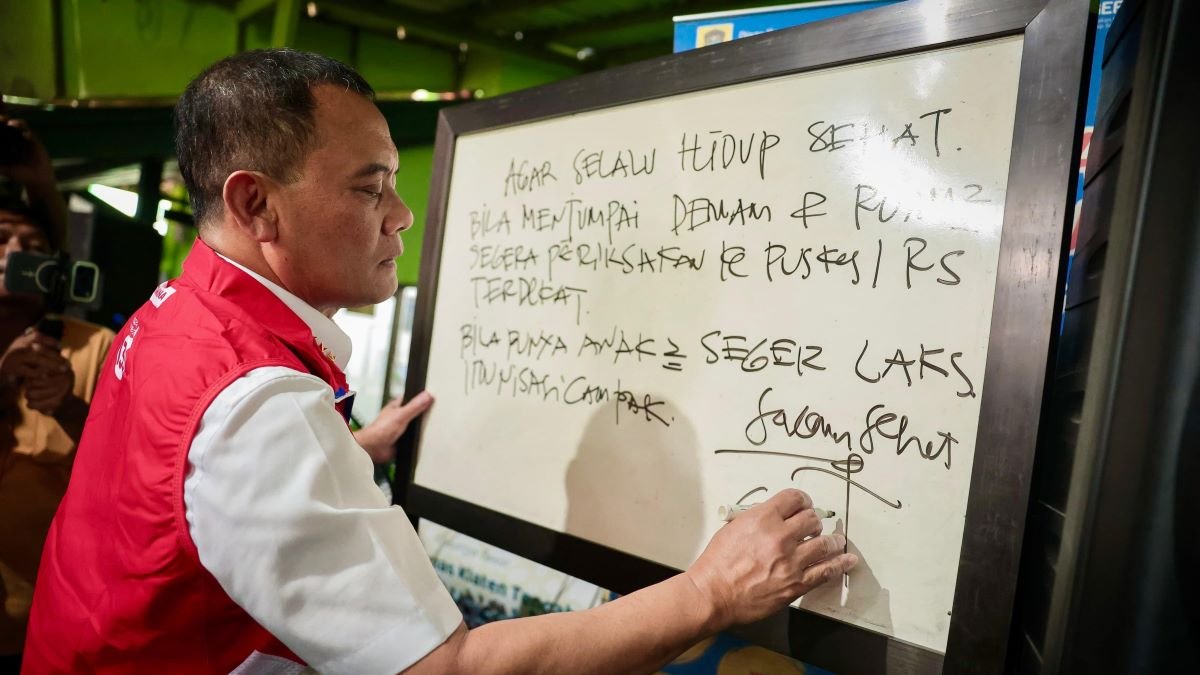 AGAR SELALU HIDUP SEHAT.
BILA MENJUMPAI DEMAM &
SEGERA PERIKSAKAN KE PUSKES / RS
TERDEKAT.
BILA PUNYA ANAK2 SEGER LAKS
CAMPAK.
Salam Sehat